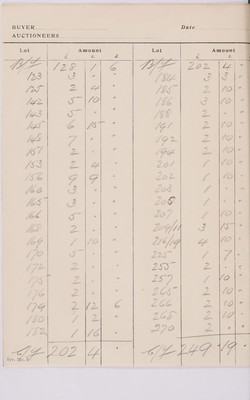 BUYER
Date
AUCTIONEERS
Lot Amount
£ s. d.
B/F 128 1 6
123 3 " "
125 2 4 "
142 5 10 "
143 5 " "
145 6 15 "
145 7 " "
151 2 " "
153 2 4 "
156 9 9 "
160 3 " "
165 3 " "
166 5 " "
168 2 " "
169 1 10 "
170 5 " "
172 2 " "
175 2 " "
176 2 " "
179 2 12 6
180 1 2 "
182 1 16 "
C/F 202 4 "
Lot Amount
£ s. d.
B/F 202 4 "
184 3 3 "
185 2 10 "
186 3 10 "
188 2 " "
191 2 10 "
192 2 10 "
194 2 10 "
201 1 10 "
202 1 10 "
203 1 " "
205 1 " "
207 1 10 "
209/11 3 15 "
216/19 4 10 "
225 1 7 "
255 2 " "
257 1 10 "
265 2 10 "
266 2 10 "
268 2 10 "
270 2 " "
C/F 249 19 "